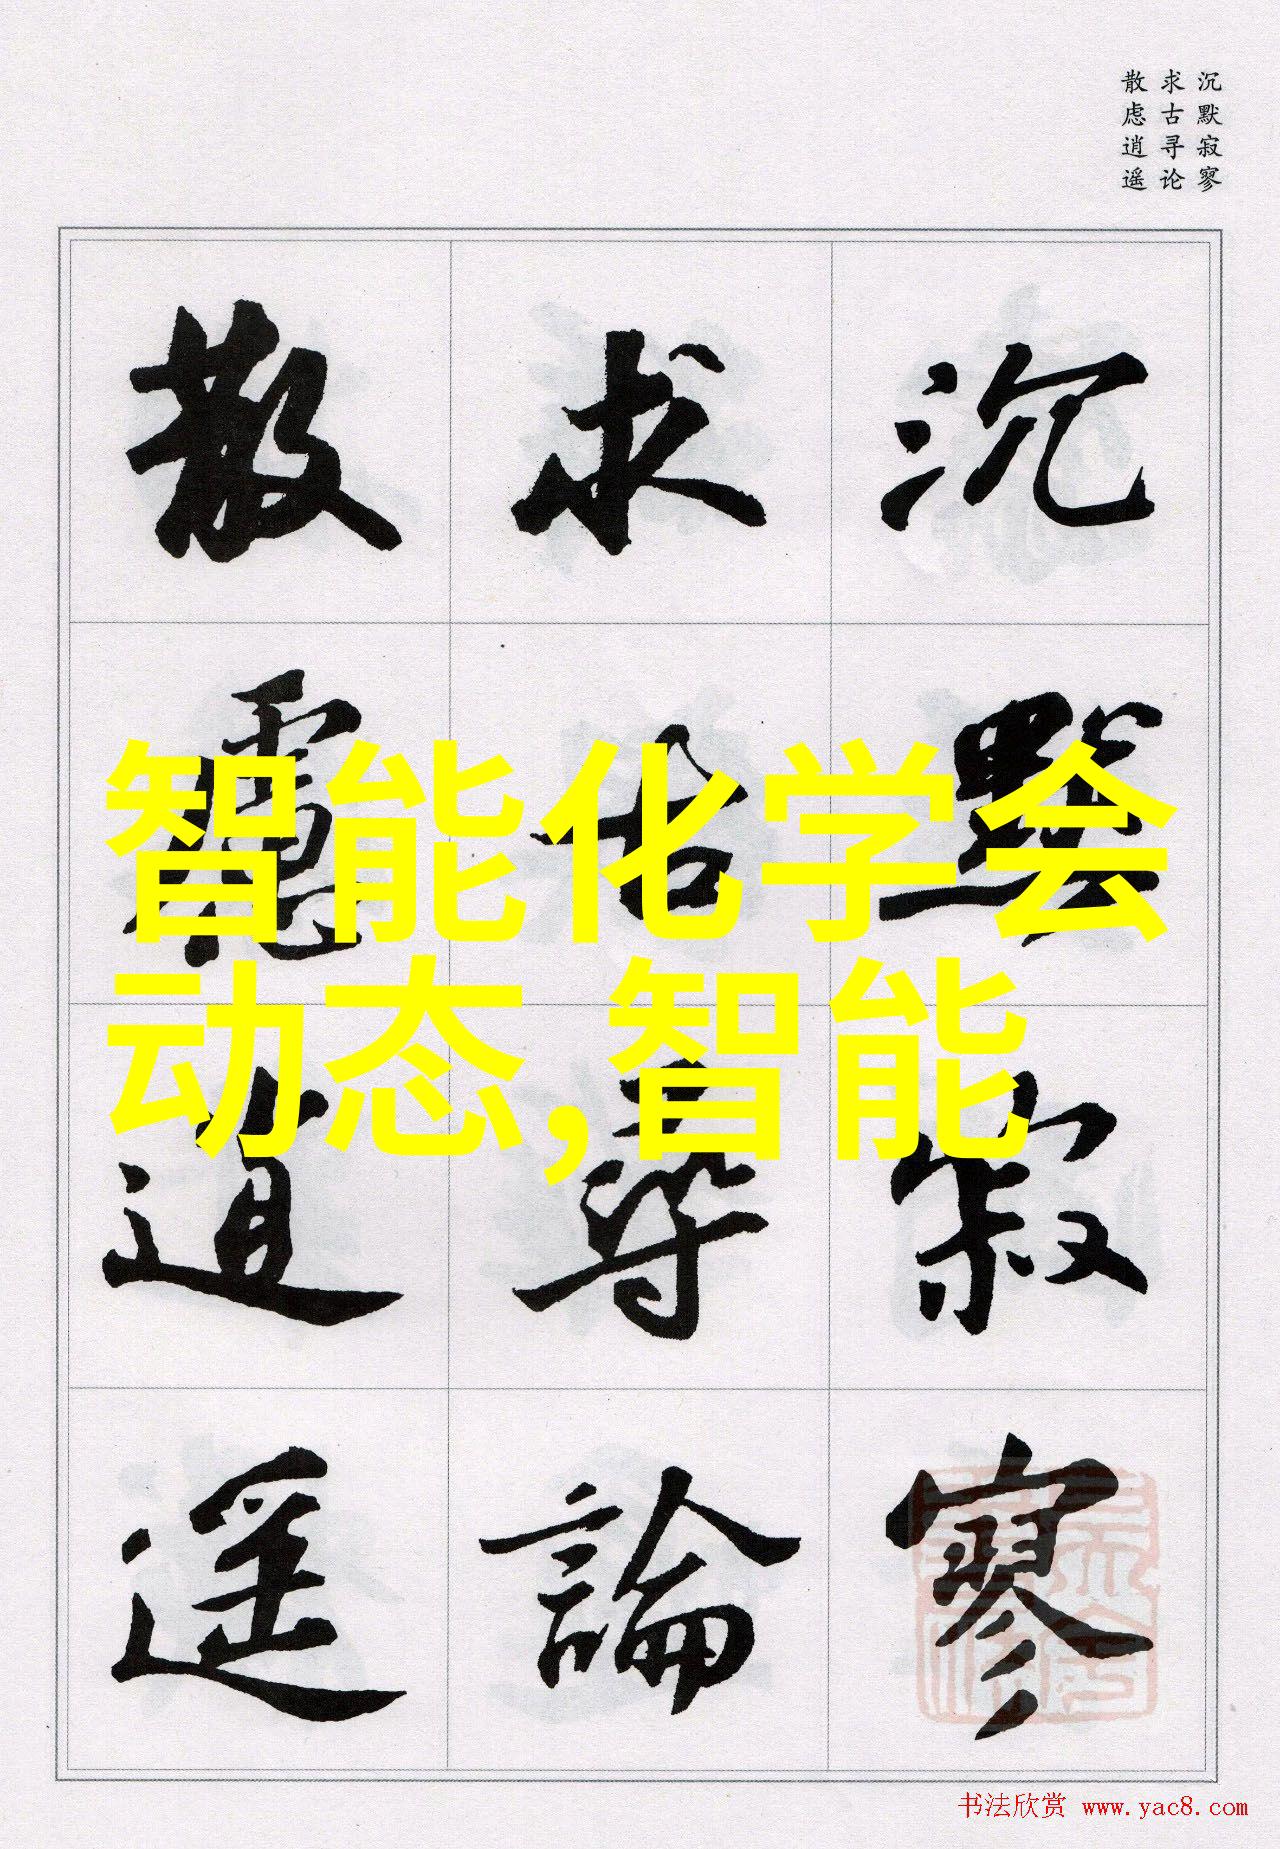 沉默寂寥
求古寻论
散虑逍遥
沉默寂寥
求古寻論
散慮逍遥
智能化学会
动态,智能
书法欣赏 www.yac8.com